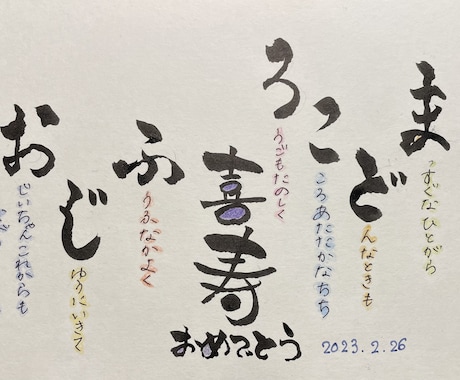 まっすぐなひとがら
どんなときも
こころあたたかなちち
ろうごもたのしく
喜寿
おめでとう
2023.2.26
ふうふなかよく
じゆうにいきて
おじいちゃんこれからも